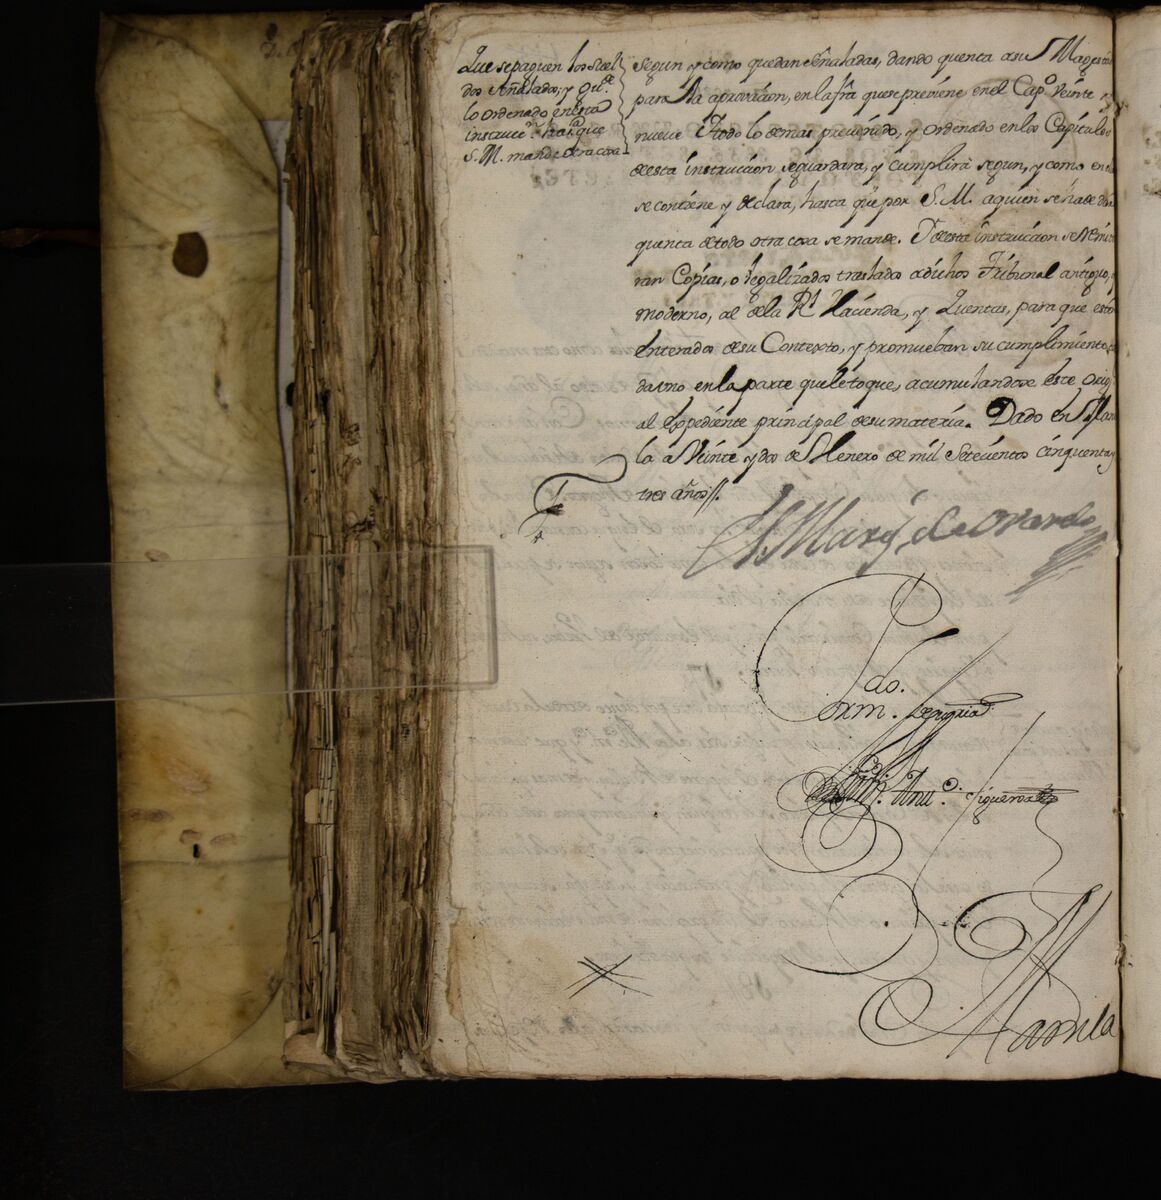 Que se paguen los suel
dos señalados, y q.e
lo ordenado en esta
instrucc.n hta q.e
S. M. mande otra cosa
segun y como quedan señaladas, dando quenta a su Magestad
para la aprovacion, en la fra que se previene en el Cap.o Veinte y
nueve Y todo lo demas prevenido, y ordenado en los Capitulos
de esta instruccion se guardara, y cumplira segun, y como en ella
se contiene y declara, hasta que por S. M. a quien se ha de dar
quenta de todo otra cosa se mande. Y de esta instruccion se remiti
ran Copias, o legalizados traslados a dichos Tribunal antiguo, y
moderno, al de la R.l Hacienda, y Quentas, para que esten
enterados de su Contexto, y promueban su cumplimiento, ca
da uno en la parte que le toque, acumulandose este orig.l
al expediente principal de su materia. Dado en Mani
la a Veinte y dos de Henero de mil setecientos cinquenta y
tres años//.
El Marq.s de Ovando
Manila